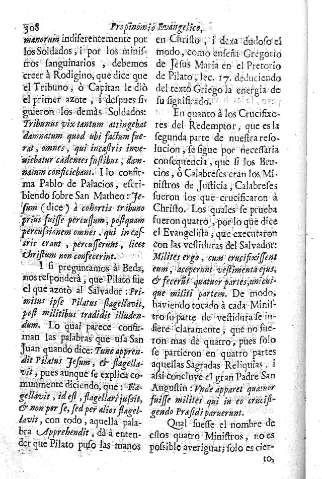 308 Propinomio Evangelico,
manorum indiferentemente por
los Soldados, i por los minis-
tros sanguinarios, debemos
creer à Rodigino, que dice que
el Tribuno, ò Capitan le diò
el primer azote, i despues si-
guieron los demás Soldados:
Tribunus vix tantum attingebat
damnatum quod ubi factum fue-
rat, omnes, qui in castris inve-
niebatur cadentes fustibus, dam-
natum conficiebant. I lo confir-
ma Pablo de Palacios, escri-
biendo sobre San Matheo: Je-
sum (dice) à cohortis tribuno
prius fuisse percussum, postquam
percussionem omnes, qui in cas-
tris erant, percusserunt, licet
Christum non confecerint.
I si preguntamos à Beda,
nos responderà, que Pilato fue
el que azotò al Salvador: Pri-
mitus ipse Pilatus flagellavit,
post militibus tradidit illuden-
dum. Lo qual parece confir-
man las palabras que usa San
Juan quando dice: Tunc appren-
dit Pilatus Jesum, & flagella-
vit, pues aunque se explica co-
munmente diciendo, que: Fla-
gellavit, id est, flagellari jussit,
& non per se, sed per alios flagel-
lavit, con todo, aquella pala-
bra Apprehendit, dà à enten-
der que Pilato puso las manos
en Christo, i dexa dudoso el
modo, como enseña Gregorio
de Jesus Maria en el Pretorio
de Pilato, lec. 17. deduciendo
del texto Griego la energia de
su significado.
En quanto à los Crucifixo-
res del Redemptor, que es la
segunda parte de nuestra reso-
lucion, se sigue por necesaria
consequencia, que si los Bru-
cios, ò Calabreses eran los Mi-
nistros de Justicia, Calabreses
fueron los que crucificaron à
Christo. Los quales se prueba
fueron quatro, por lo que dice
el Evangelista, que executaron
con las vestiduras del Salvador:
Milites ergo, cum crucifixissent
eum, acceperunt vestimenta ejus,
& fecerunt quatuor partes, unicui-
que militi partem. De modo,
haviendo tocado à cada Minis-
tro su parte de vestidura se in-
fiere claramente, que no fue-
ron mas de quatro, pues solo
se partieron en quatro partes
aquellas Sagradas Reliquias, i
asi concluye el gran Padre San
Augustin: Unde apparet quatuor
fuisse milites qui in eo crucifi-
gendo Præsidi paruerunt.
Qual fuese el nombre de
estos quatro Ministros, no es
posible averiguar; solo es cier-
to,